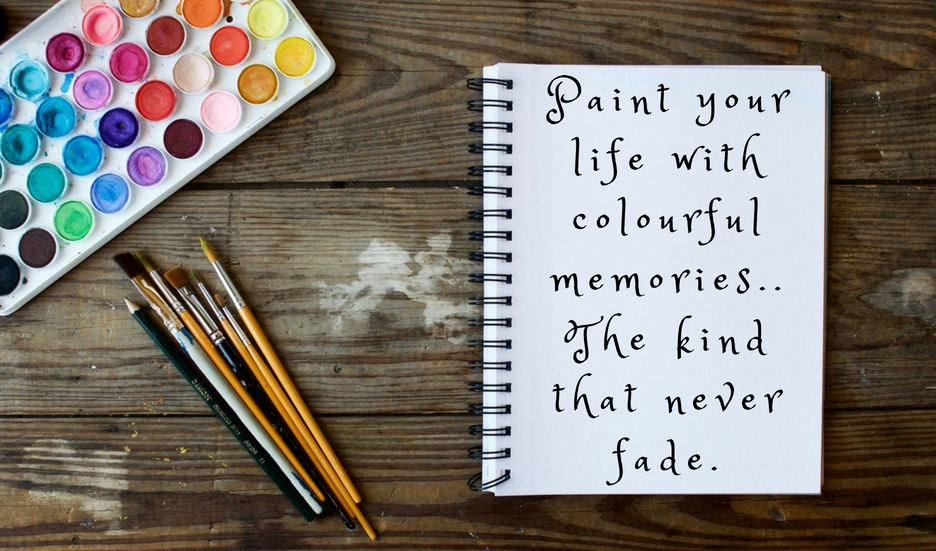 Paint your
life with
colourful
memories..
The kind
that never
fade.